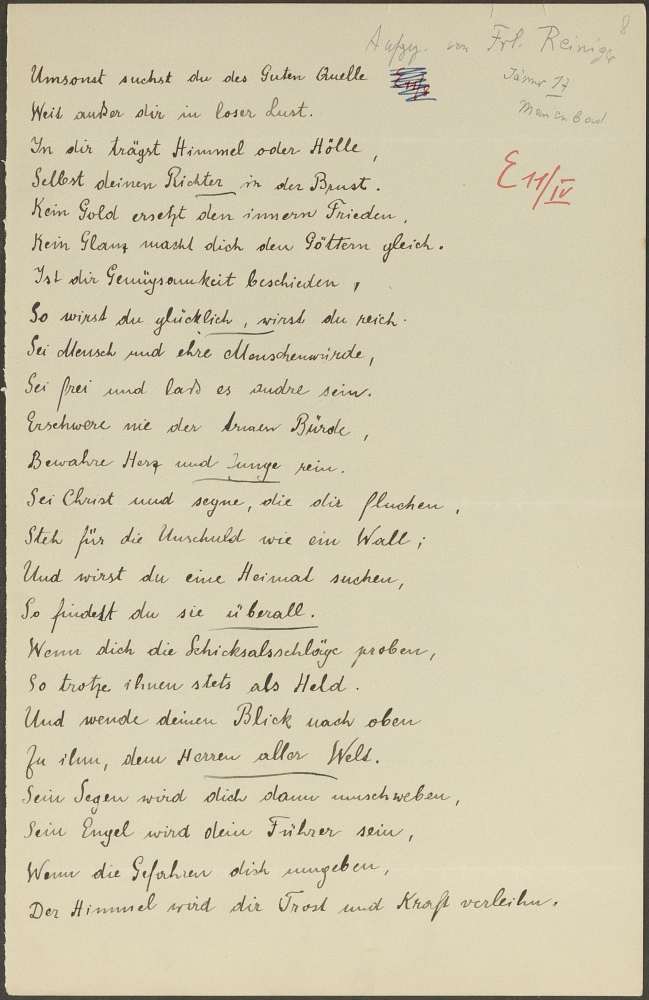 8
Aufgez. von Frl. Reiniger
Jänner 17
Marienbad
E 11/IV
Umsonst suchst du des Guten Quelle
Weit außer dir in loser Lust.
In dir trägst Himmel oder Hölle,
Selbst deinen Richter in der Brust.
Kein Gold ersetzt den innern Frieden,
Kein Glanz macht dich den Göttern gleich.
Ist dir Genügsamkeit beschieden,
So wirst du glücklich, wirst du reich.
Sei Mensch und ehre Menschenwürde,
Sei frei und laß es andre sein.
Erschwere nie der Armen Bürde,
Bewahre Herz und Zunge rein.
Sei Christ und segne, die dir fluchen,
Steh für die Unschuld wie ein Wall;
Und wirst du eine Heimat suchen,
So findest du sie überall.
Wenn dich die Schicksalsschläge proben,
So trotze ihnen stets als Held.
Und wende deinen Blick nach oben
Zu ihm, dem Herren aller Welt.
Sein Segen wird dich dann umschweben,
Sein Engel wird dein Führer sein,
Wenn die Gefahren dich umgeben,
Der Himmel wird dir Trost und Kraft verleihn.